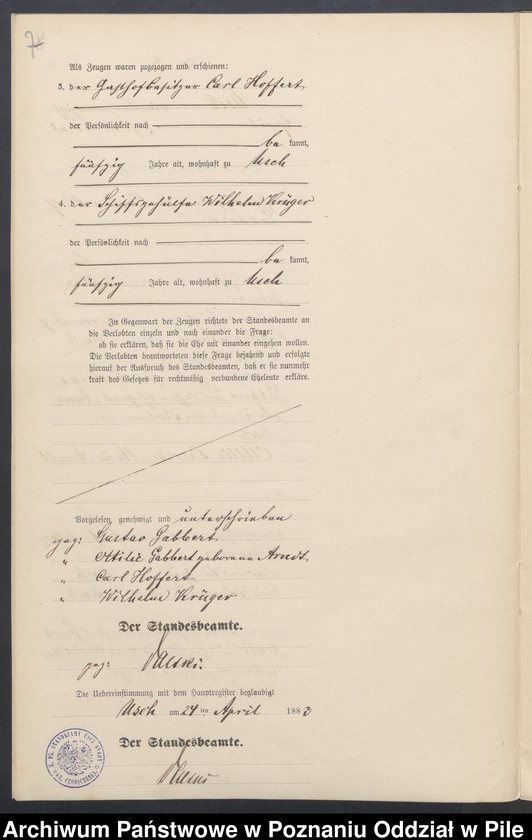 7
Als Zeugen waren zugezogen und erschienen:
3. der Gasthofbesitzer Carl Hoffert
der Persönlichkeit nach
be kannt,
fünfzig Jahre alt, wohnhaft zu Usch
4. der Schiffsgehülfe Wilhelm Krüger
der Persönlichkeit nach
be kannt,
fünfzig Jahre alt, wohnhaft zu Usch
In Gegenwart der Zeugen richtete der Standesbeamte an
die Verlobten einzeln und nach einander die Frage:
ob sie erklären, daß sie die Ehe mit einander eingehen wollen.
Die Verlobten beantworteten diese Frage bejahend und erfolgte
hierauf der Ausspruch des Standesbeamten, daß er sie nunmehr
kraft des Gesetzes für rechtmäßig verbundene Eheleute erkläre.
Vorgelesen, genehmigt und unterschrieben
gez: Gustav Gabbert
" Ottilie Gabbert geborene Arndt
" Carl Hoffert
" Wilhelm Krüger
Der Standesbeamte.
gez:
Die Uebereinstimmung mit dem Hauptregister beglaubigt
Usch am 24 ten April 1883
Der Standesbeamte.
Archiwum Państwowe w Poznaniu Oddział w Pile